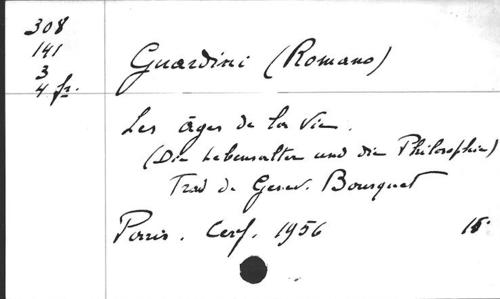 308
141
3
4 fr.
Guardini (Romano)
Les âges de la vie.
(Die Lebensalter und die Philosophie)
Trad de Genev. Bousquet
Paris. Cerf. 1956 15.